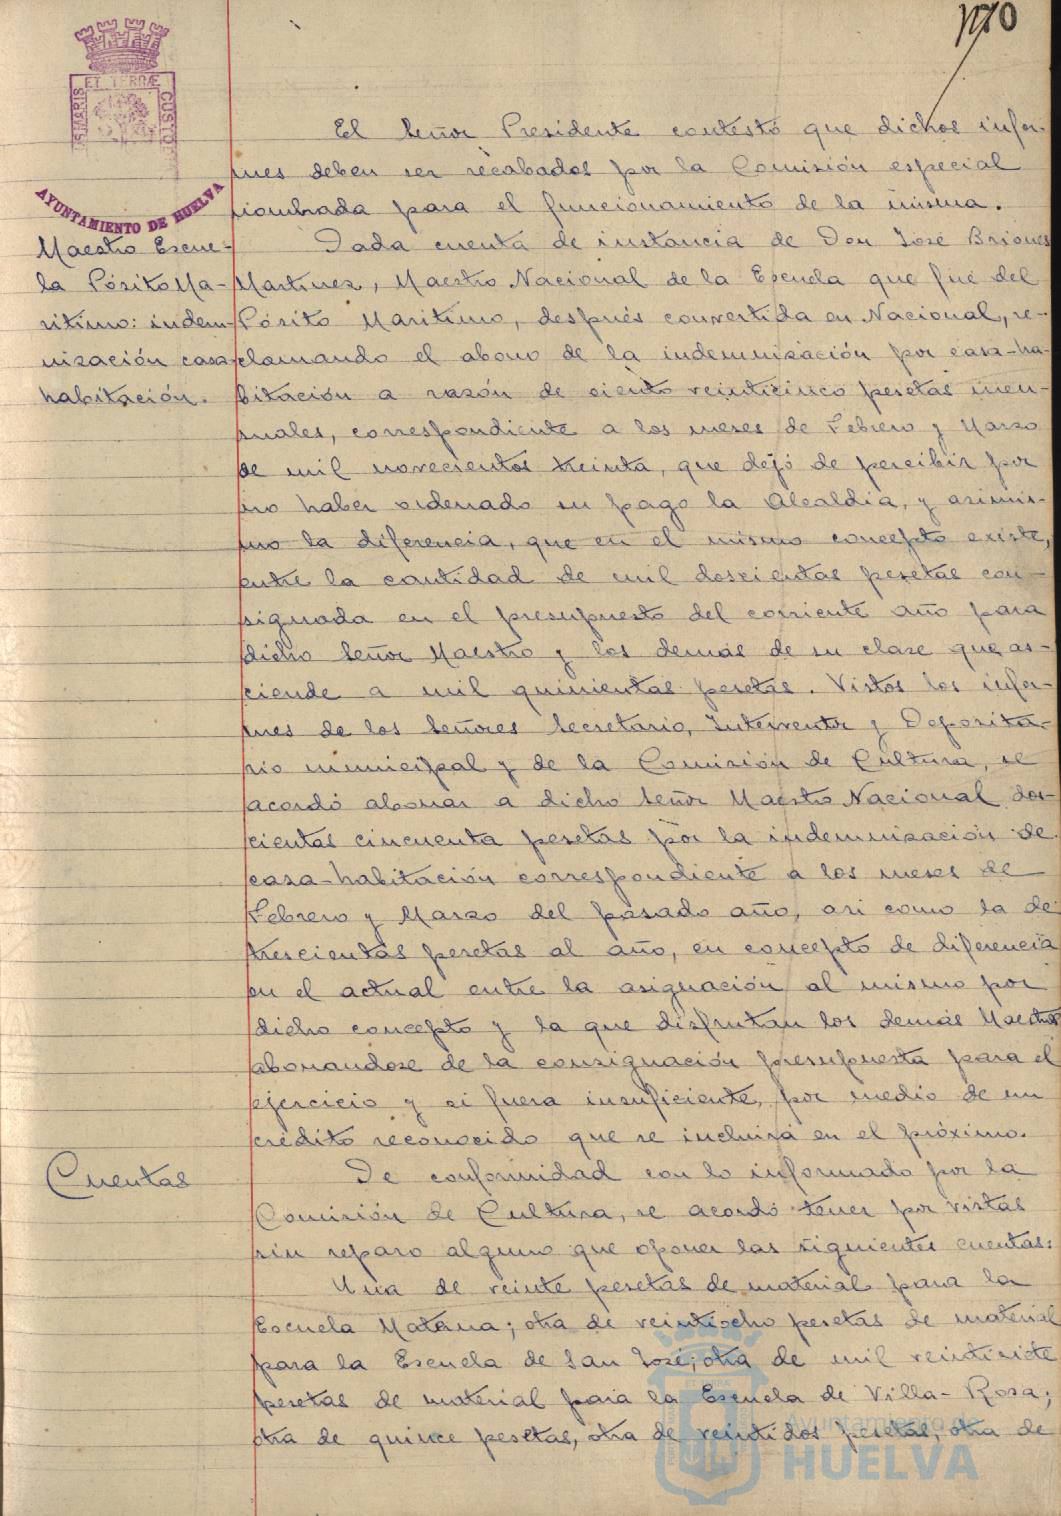 170
ET TERRÆ
MARIS
CUSTO
AYUNTAMIENTO DE HUELVA
El Señor Presidente contestó que dichos infor-
mes deben ser recabados por la Comisión especial
nombrada para el funcionamiento de la misma.
Maestro Escue-
la Pósito Ma-
ritimo: indem-
nización casa
habitación.
Dada cuenta de instancia de Don José Briones
Martinez, Maestro Nacional de la Escuela que fué del
Pósito Maritimo, después convertida en Nacional, re-
clamando el abono de la indemnización por casa-ha-
bitación a razón de ciento veinticinco pesetas men-
suales, correspondiente a los meses de Febrero y Marzo
de mil novecientos treinta, que dejó de percibir por
no haber ordenado su pago la Alcaldia, y asimis-
mo la diferencia, que en el mismo concepto existe,
entre la cantidad de mil doscientas pesetas con-
signada en el presupuesto del corriente año para
dicho Señor Maestro y los demás de su clase que as-
ciende a mil quinientas pesetas. Vistos los infor-
mes de los Señores Secretario, Interventor y Deposita-
rio municipal y de la Comisión de Cultura, se
acordó abonar a dicho Señor Maestro Nacional dos-
cientas cincuenta pesetas por la indemnización de
casa-habitación correspondiente a los meses de
Febrero y Marzo del pasado año, asi como la de
trescientas pesetas al año, en concepto de diferencia
en el actual entre la asignación al mismo por
dicho concepto y la que disfrutan los demás Maestros
abonandose de la consignación presupuesta para el
ejercicio y si fuera insuficiente, por medio de un
crédito reconocido que se incluirá en el próximo.
Cuentas
De conformidad con lo informado por la
Comisión de Cultura, se acordó tener por vistas
sin reparo alguno que oponer las siguientes cuentas:
Una de veinte pesetas de material para la
Escuela Materna; otra de veintiocho pesetas de material
para la Escuela de San José; otra de mil veintisiete
pesetas de material para la Escuela de Villa-Rosa;
otra de quince pesetas, otra de veintidos pesetas, otra de
Ayuntamiento de
HUELVA